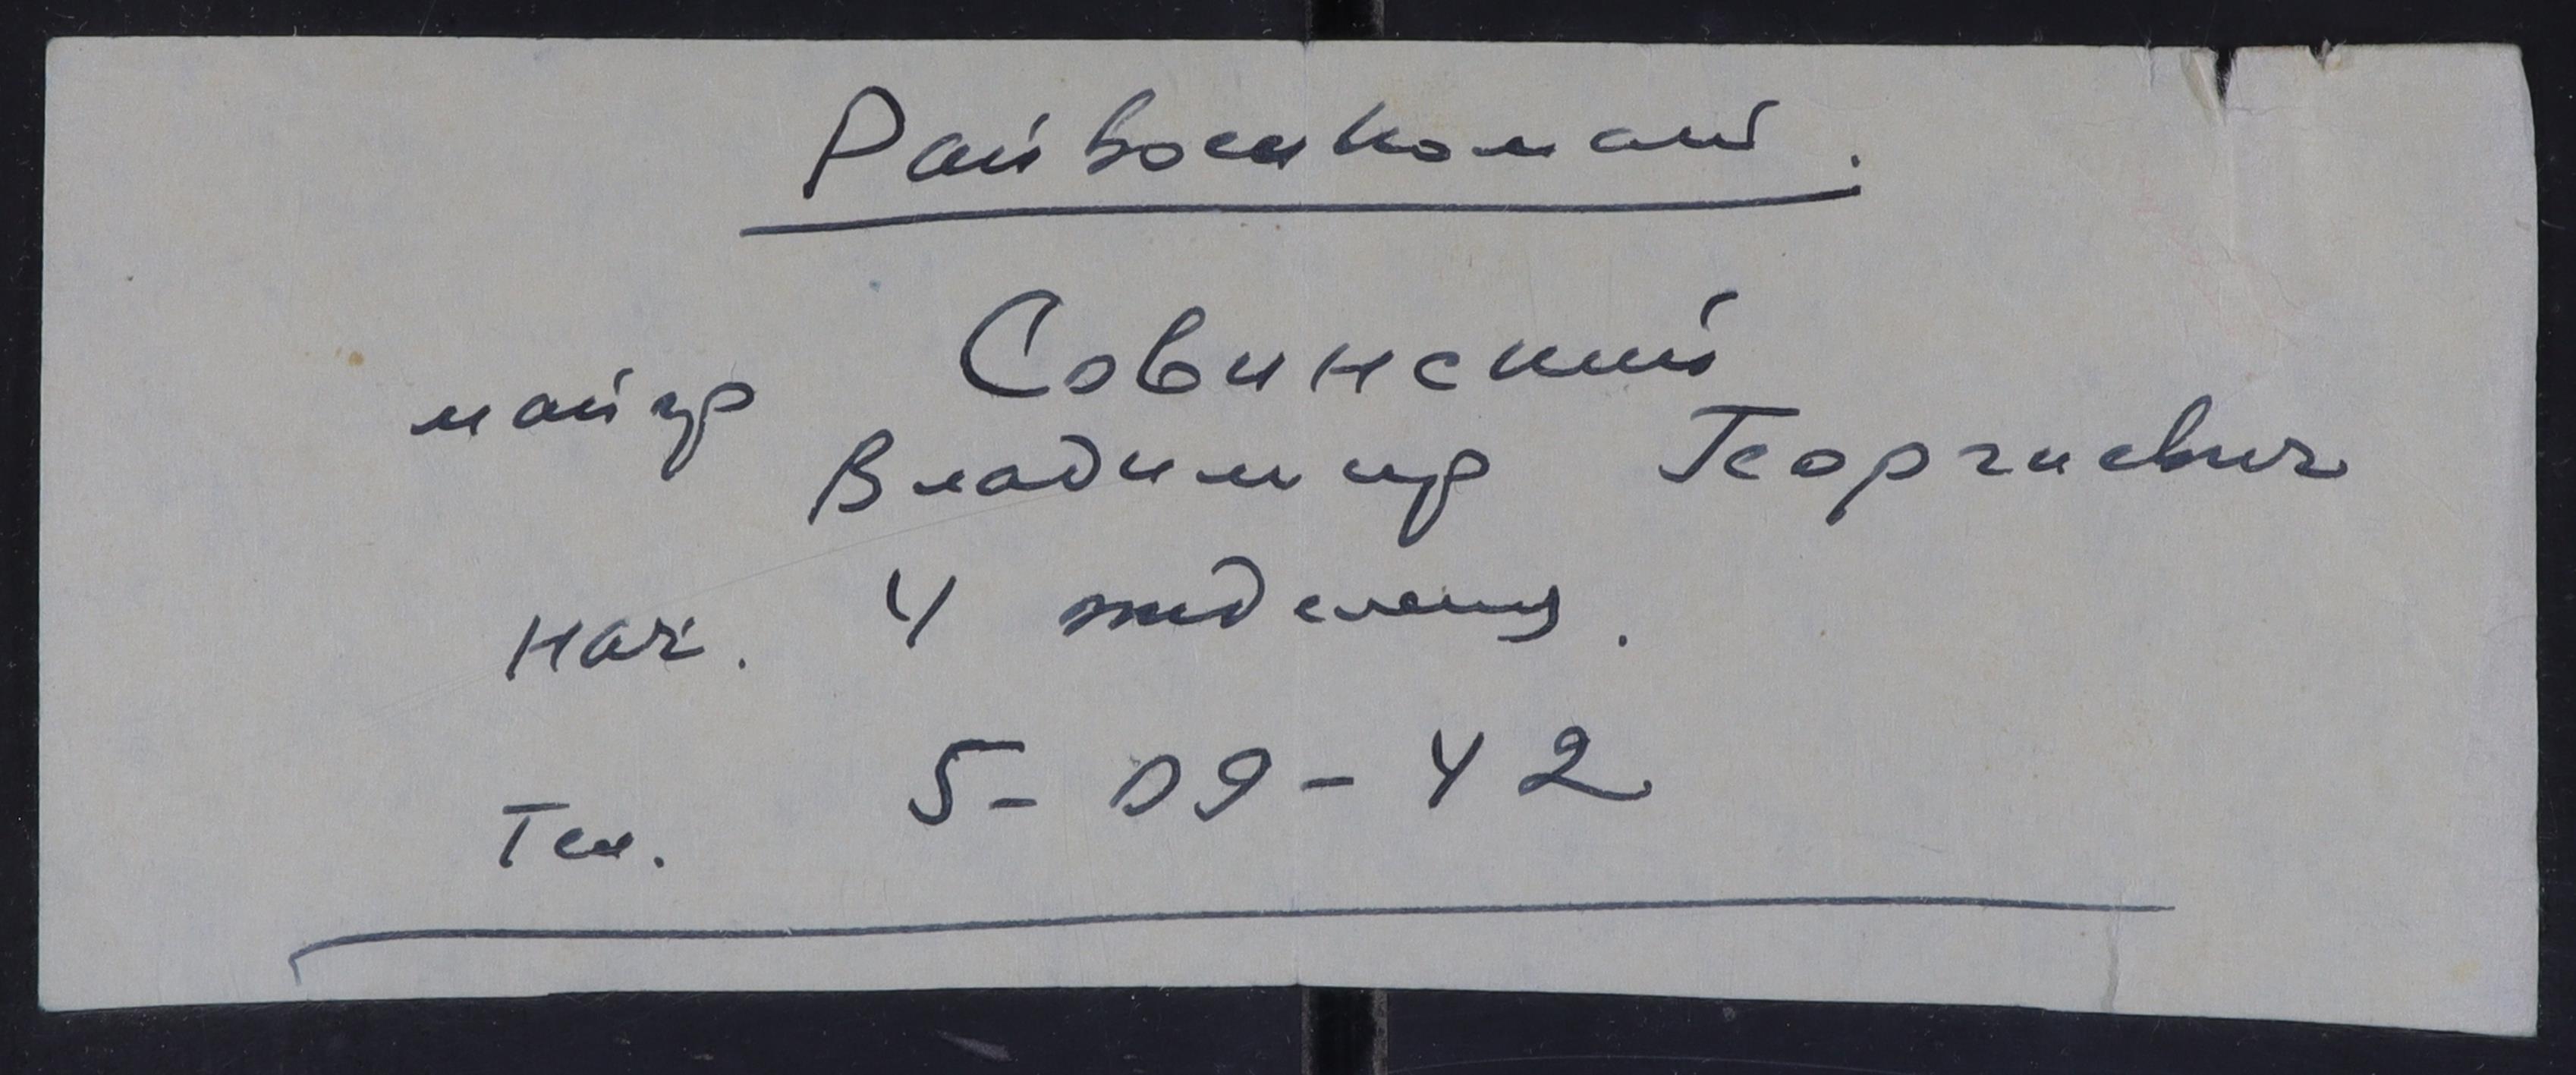 Райвоенкомат.
майор Совинский
Владимир Георгиевич
Нач. 4 отделения.
Тел. 5-09-42